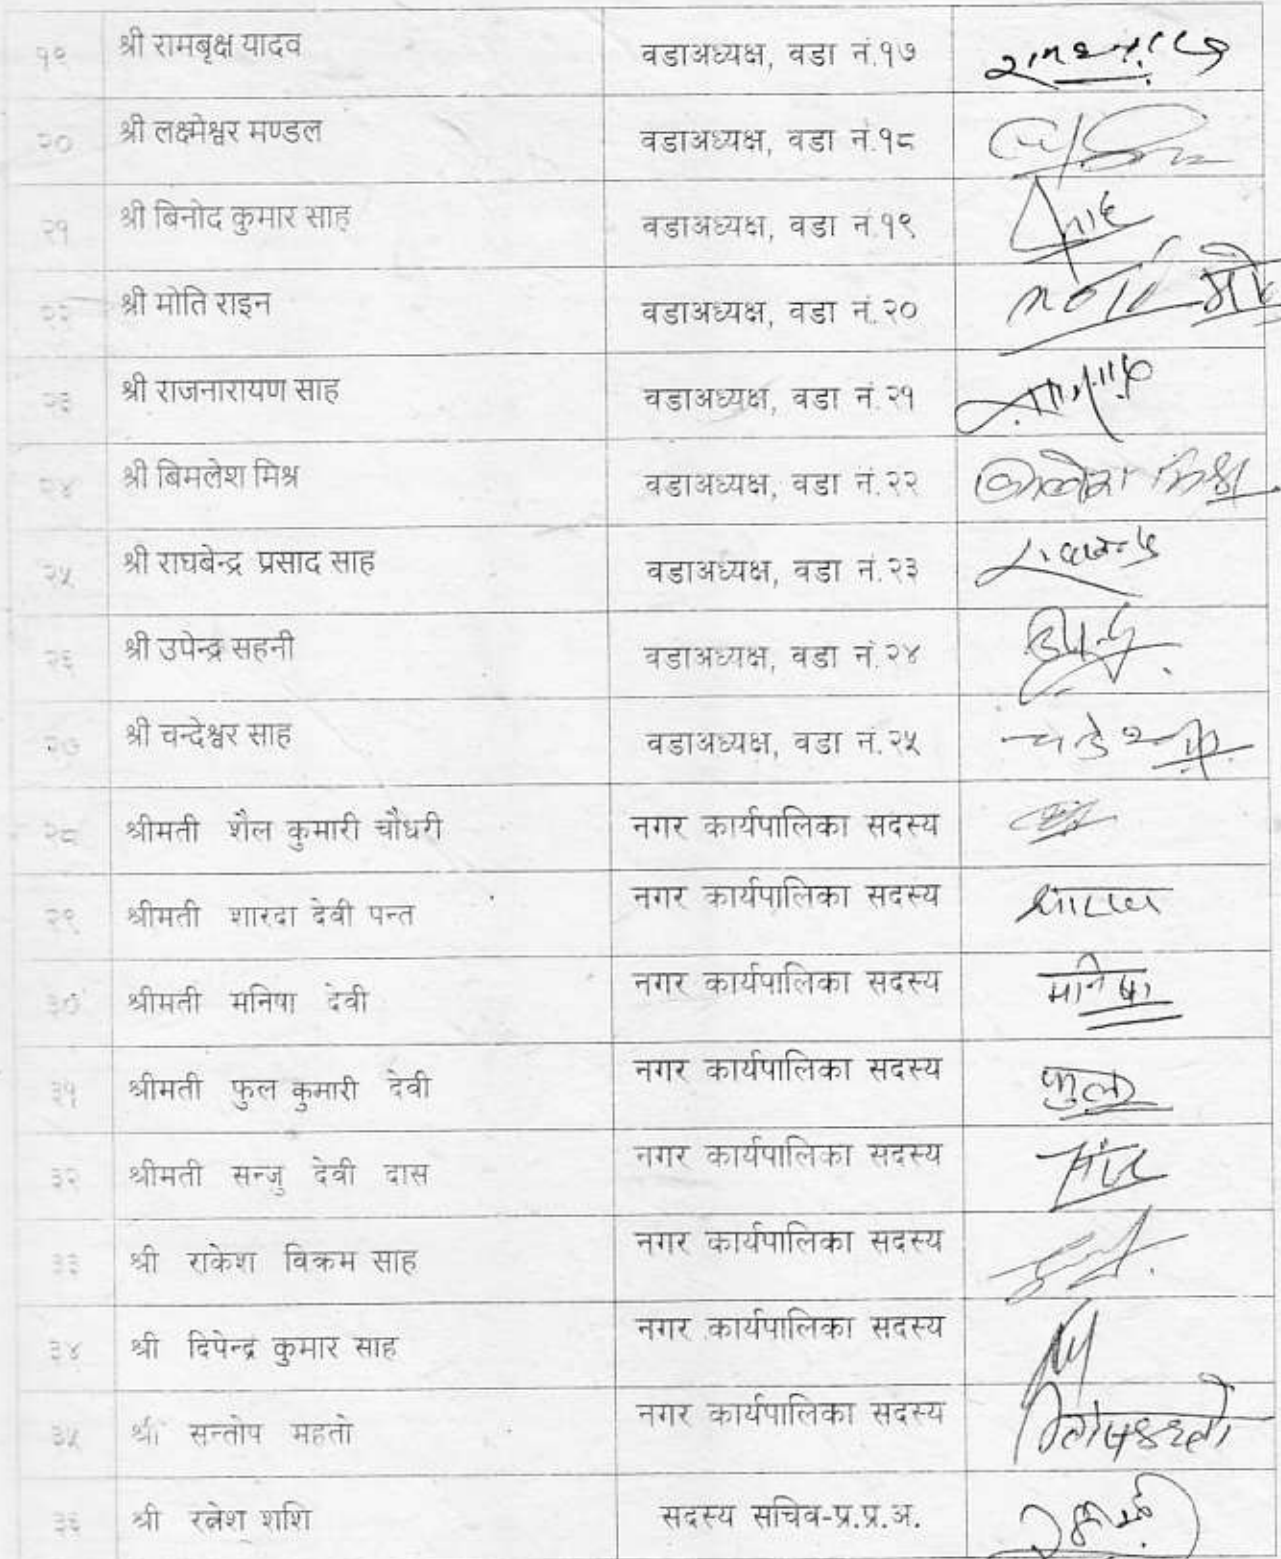 १९ श्री रामबृक्ष यादव वडाअध्यक्ष, वडा नं.१७
२० श्री लक्ष्मेश्वर मण्डल वडाअध्यक्ष, वडा नं.१८
२१ श्री बिनोद कुमार साह वडाअध्यक्ष, वडा नं.१९
२२ श्री मोति राइन वडाअध्यक्ष, वडा नं.२०
२३ श्री राजनारायण साह वडाअध्यक्ष, वडा नं.२१
२४ श्री बिमलेश मिश्र वडाअध्यक्ष, वडा नं.२२
२५ श्री राघबेन्द्र प्रसाद साह वडाअध्यक्ष, वडा नं.२३
२६ श्री उपेन्द्र सहनी वडाअध्यक्ष, वडा नं.२४
२७ श्री चन्देश्वर साह वडाअध्यक्ष, वडा नं.२५
२८ श्रीमती शैल कुमारी चौधरी नगर कार्यपालिका सदस्य
२९ श्रीमती शारदा देवी पन्त नगर कार्यपालिका सदस्य
३० श्रीमती मनिषा देवी नगर कार्यपालिका सदस्य मनिषा
३१ श्रीमती फुल कुमारी देवी नगर कार्यपालिका सदस्य फुल
३२ श्रीमती सन्जु देवी दास नगर कार्यपालिका सदस्य
३३ श्री राकेश विक्रम साह नगर कार्यपालिका सदस्य
३४ श्री दिपेन्द्र कुमार साह नगर कार्यपालिका सदस्य
३५ श्री सन्तोष महतो नगर कार्यपालिका सदस्य
३६ श्री रत्नेश शशि सदस्य सचिव-प्र.प्र.अ.